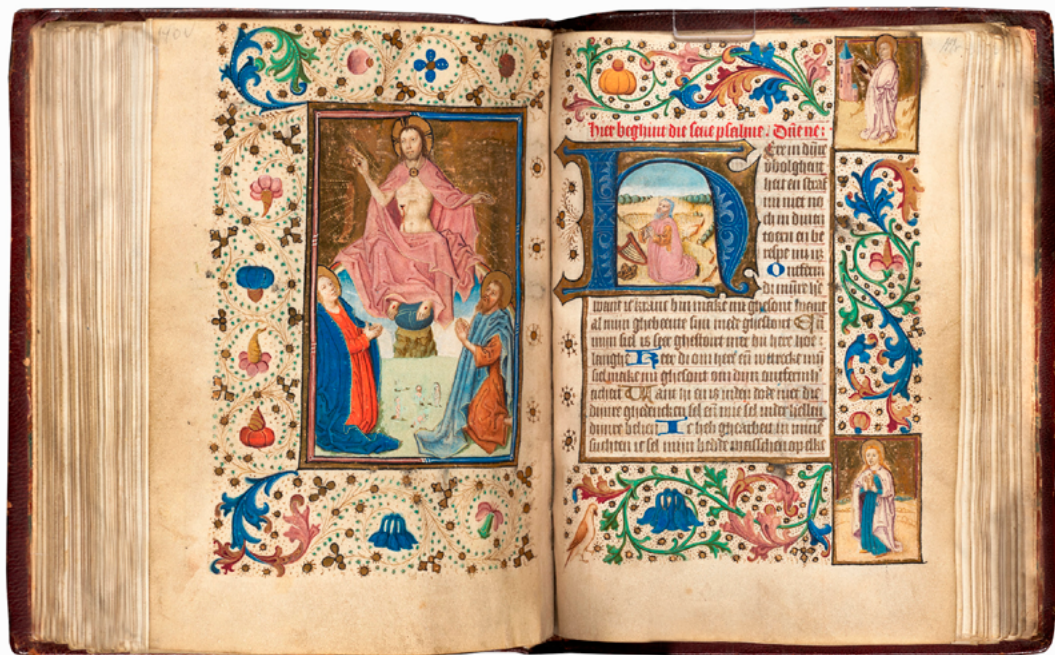 hier beghint die seue psalme. Dñe ne:
Here in dijnre
v̄bolghent
heit en straf
mi niet no
ch in dinen
toern en be
respe mi n;
Ontferm
di mijnre h̄e
want ic kranc bin make mi ghesont want
al mijn ghebeente sijn mede ghestoert En
mijn siel is seer ghestoert mer du here hoe
langhe Keer di om here en̄ v̄trecke mijn
siel make mi ghesont om dijn ontfermh̄
ticheit Want hi en is inden dode niet die
dijnre ghedencken sel en̄ wie sel inder hellen
dijnre belien Ic heb ghearbeit in mijnē
suchten ic sel mijn bedde wasschen op elke